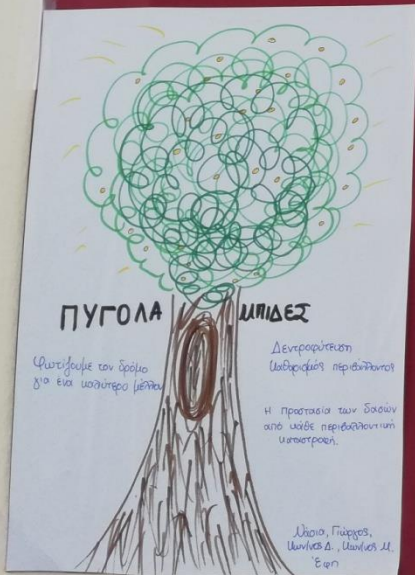 ΠΥΓΟΛΑ ΜΠΙΔΕΣ
Φωτίζουμε τον δρόμο
για ένα καλύτερο μέλλον
Δεντροφύτευση
καθαρισμός περιβάλλοντος
Η προστασία των δασών
από κάθε περιβαλλοντική
καταστροφή.
Νάσια, Γιώργος,
Κων/νος Δ., Κων/νος Μ.
Έφη